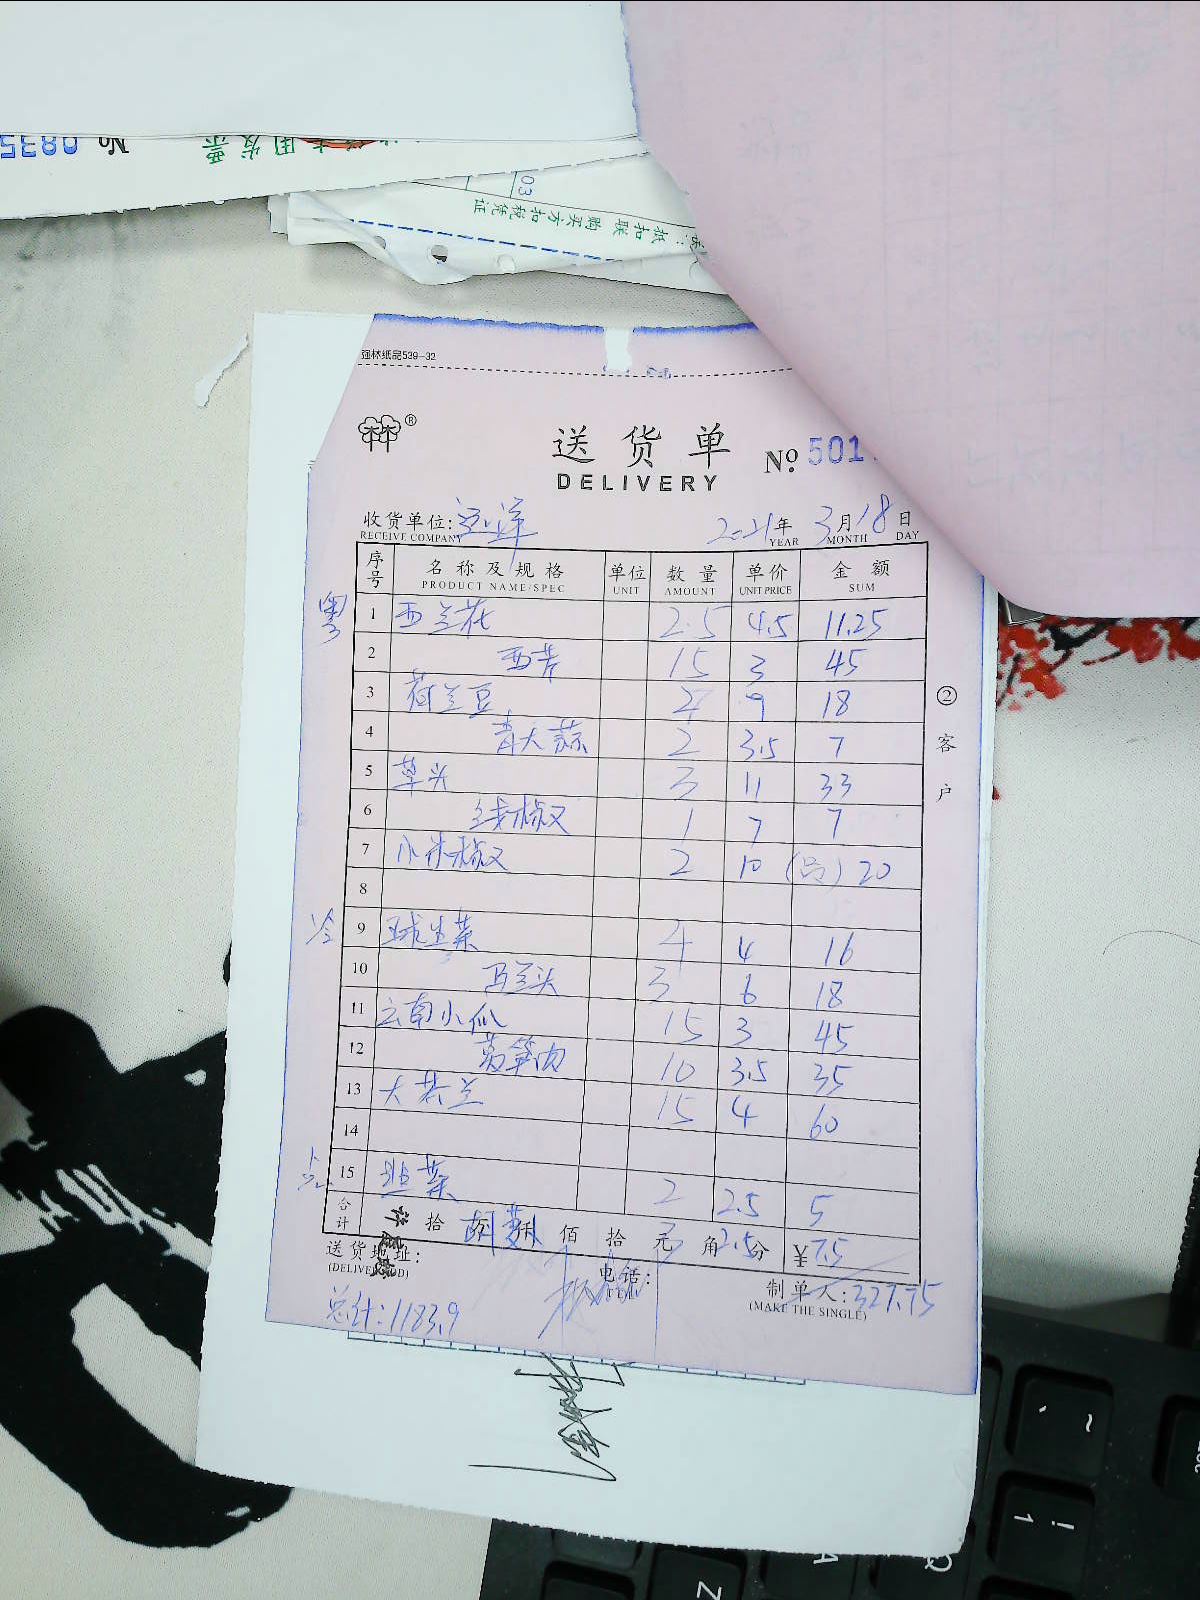 No 0835
专用发票
03
联：抵扣联 购买方扣税凭证
强林纸品539-32
®
送货单 No. 501
DELIVERY
收货单位: 远洋 2021年 3月18日
RECEIVE COMPANY YEAR MONTH DAY
序号 名称及规格 单位 数量 单价 金额
PRODUCT NAME/SPEC UNIT AMOUNT UNIT PRICE SUM
粤 1 西兰花 2.5 4.5 11.25
2 西芹 15 3 45
3 荷兰豆 2 9 18
4 青大蒜 2 3.5 7
5 草头 3 11 33
6 线椒 1 7 7
7 小米椒 2 10 20
8
冷 9 球生菜 4 4 16
10 马兰头 3 6 18
11 云南小瓜 15 3 45
12 莴笋肉 10 3.5 35
13 大芥兰 15 4 60
14
点 15 韭菜 2 2.5 5
合计 拾 万 仟 佰 拾 元 角 分 ¥ 7.5
胡萝卜 3 2.5
送货地址: 电话: 制单人: 327.75
(DELIVER ADD) (TEL) (MAKE THE SINGLE)
总计: 1183.9
② 客户